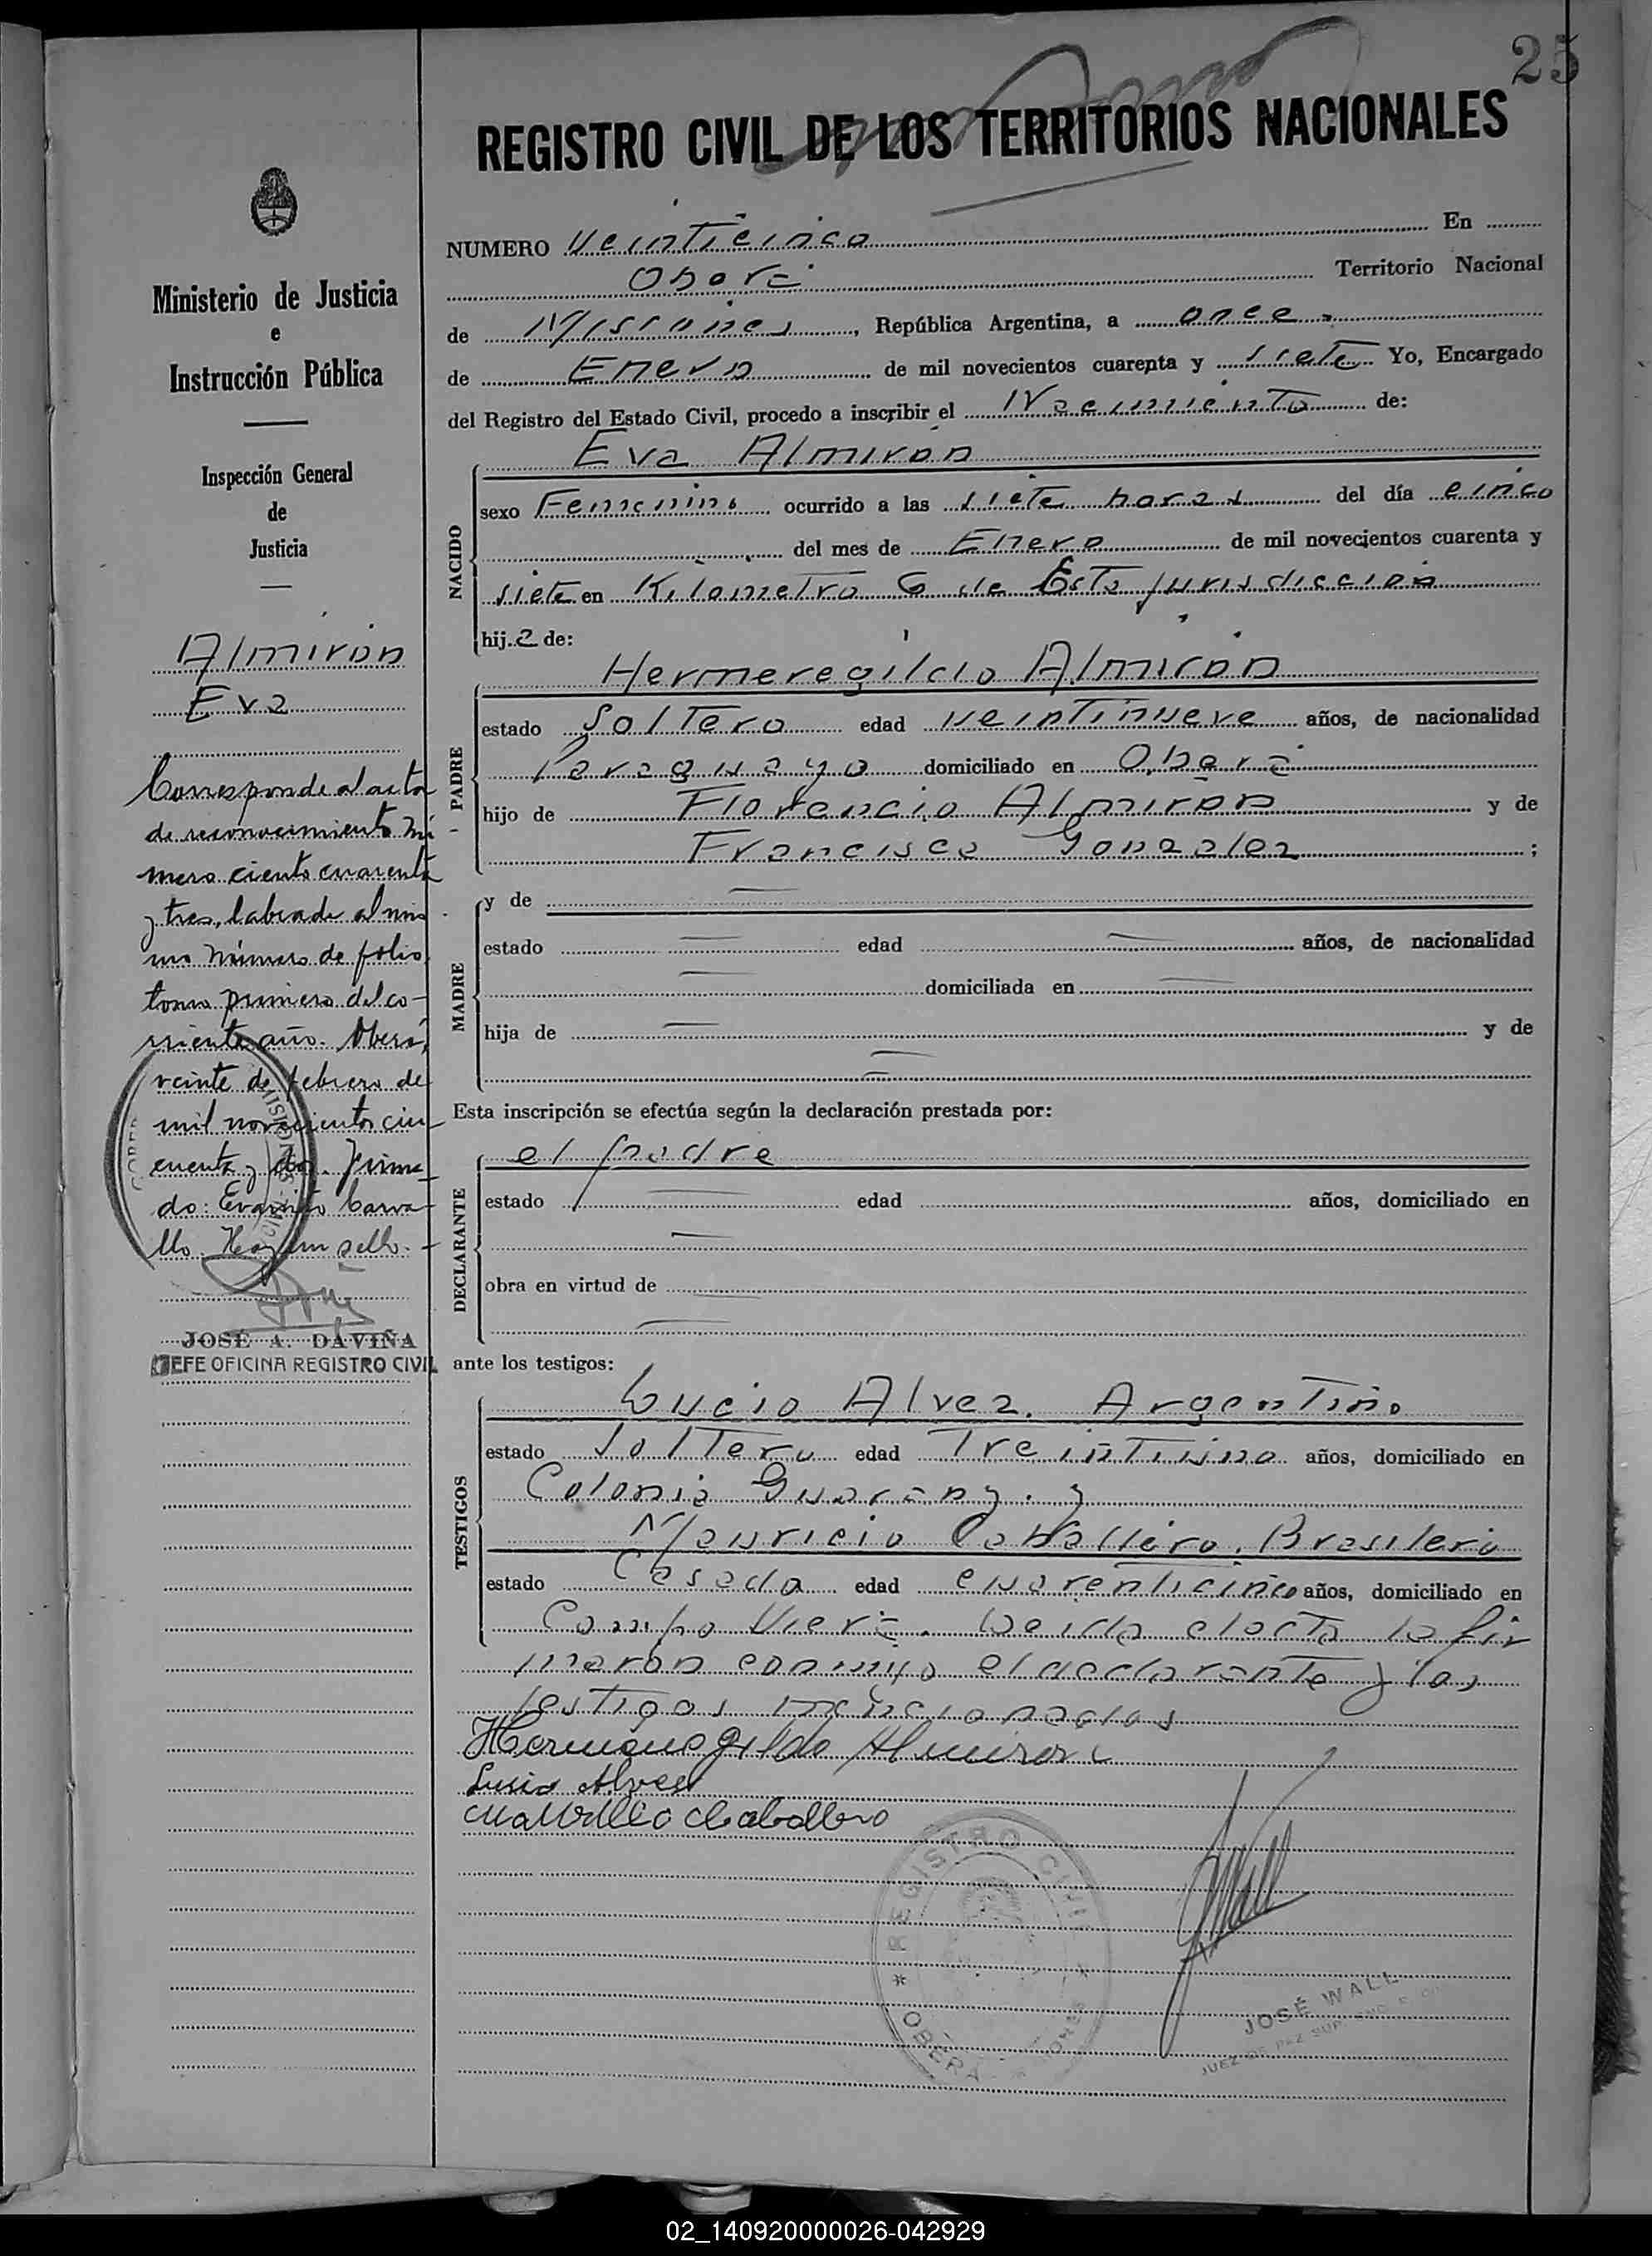 25
REGISTRO CIVIL DE LOS TERRITORIOS NACIONALES
Ministerio de Justicia
e
Instrucción Pública
Inspección General
de
Justicia
Almirón
Eva
Corresponde al acta
de reconocimiento nú
mero ciento cuarenta
y tres, labrada al mis
mo número de folio
tomo primero del co-
rriente año. Oberá,
veinte de febrero de
mil novecientos cin-
cuenta y dos. Firma-
do: Evaristo Carva-
llo. Hay un sello.-
JOSÉ A. DAVIÑA
JEFE OFICINA REGISTRO CIVIL
NUMERO Veinticinco En
Oberá Territorio Nacional
de Misiones, República Argentina, a once
de Enero de mil novecientos cuarenta y siete Yo, Encargado
del Registro del Estado Civil, procedo a inscribir el Nacimiento de:
NACIDO
Eva Almirón
sexo Femenino ocurrido a las siete horas del día cinco
del mes de Enero de mil novecientos cuarenta y
siete en Kilometro 6 de Esta jurisdiccion
hija de:
PADRE
Hermeregildo Almirón
estado Soltero edad veintinueve años, de nacionalidad
Paraguayo domiciliado en Oberá
hijo de Florencio Almirón y de
Francisca Gonzalez ;
MADRE
y de
estado edad años, de nacionalidad
domiciliada en
hija de y de
Esta inscripción se efectúa según la declaración prestada por:
DECLARANTE
el padre
estado edad años, domiciliado en
obra en virtud de
ante los testigos:
TESTIGOS
Lucio Alvez. Argentino
estado Soltero edad Treintiuno años, domiciliado en
Colonia Guarany. y
Mauricio Caballero. Brasilero
estado Casado edad cuarenticinco años, domiciliado en
Campo Viera. Leida el acta la fir
maron conmigo el declarante y los
testigos mencionados
Hermenegildo Almiron
Lusio Alves
Mauricio Caballero
REGISTRO CIVIL
OBERA
JOSÉ WALL
JUEZ DE PAZ
02_140920000026-042929